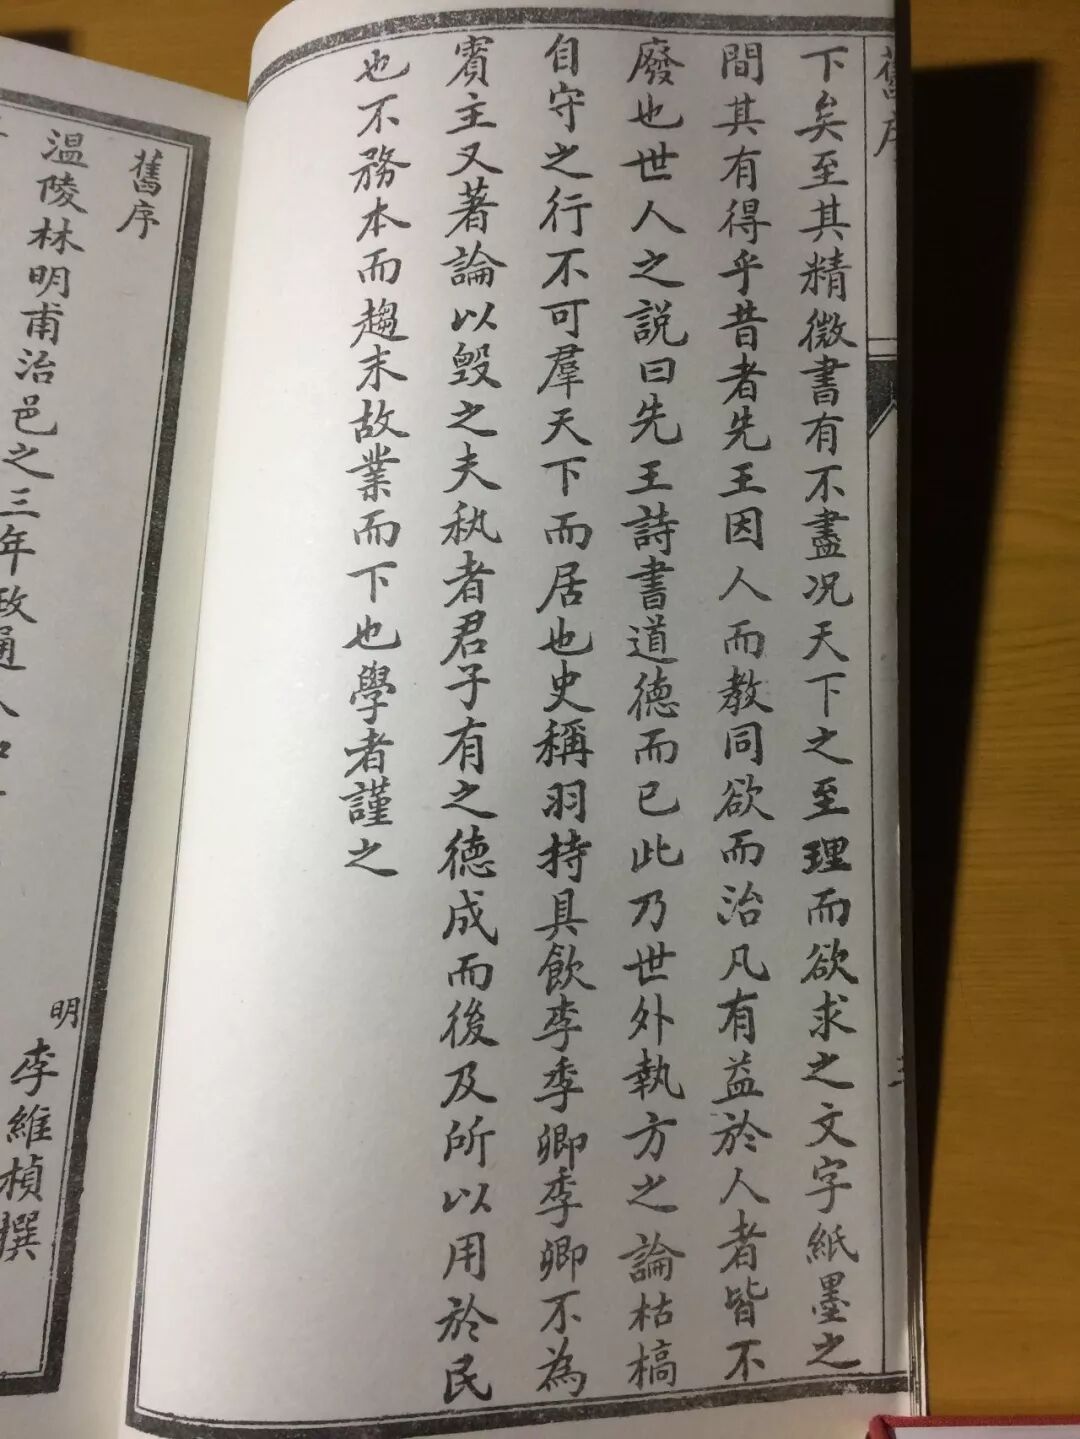 舊序
下矣至其精微書有不盡况天下之至理而欲求之文字紙墨之
間其有得乎昔者先王因人而教同欲而治凡有益於人者皆不
廢也世人之説曰先王詩書道德而已此乃世外執方之論枯槁
自守之行不可羣天下而居也史稱羽持具飲李季卿季卿不為
賓主又著論以毀之夫秇者君子有之德成而後及所以用於民
也不務本而趨末故業而下也學者謹之
舊序
明 李維楨撰
温陵林明甫治邑之三年政通人和